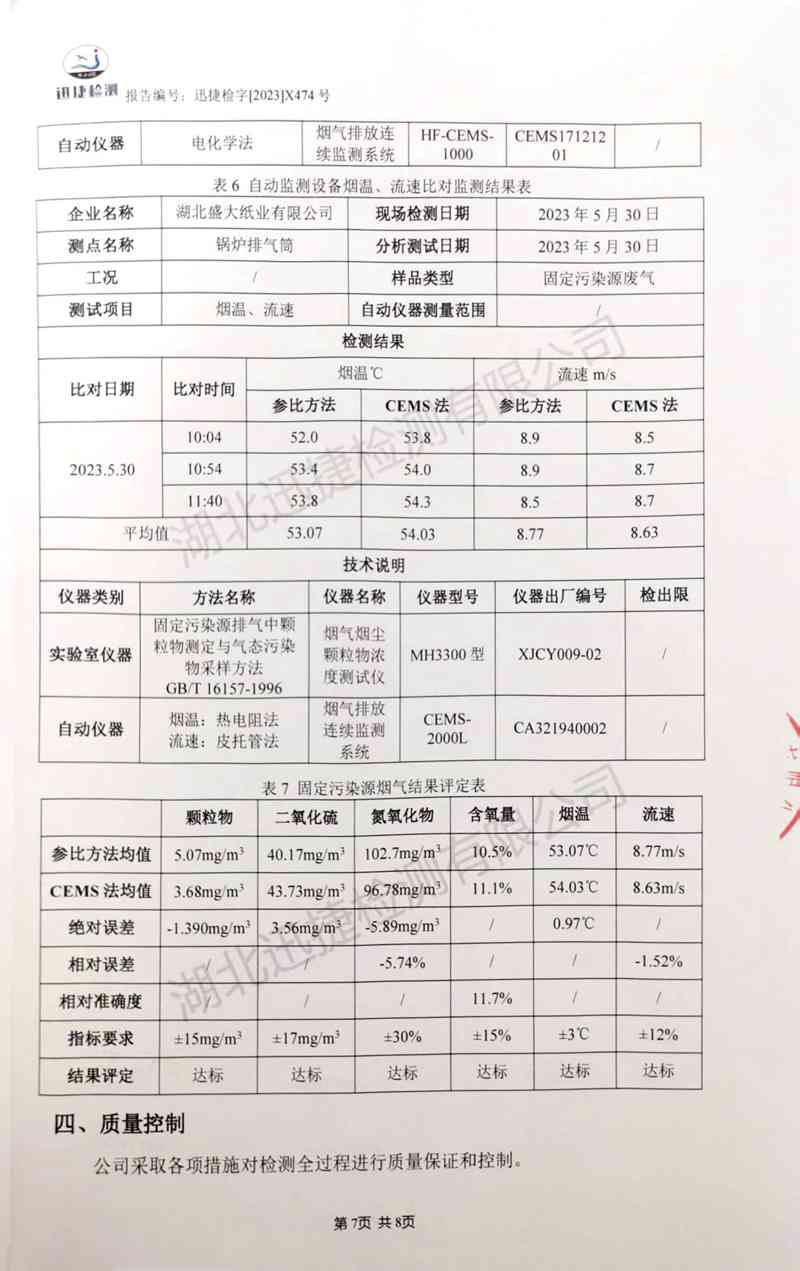 迅捷检测 报告编号：迅捷检字[2023]X474号
自动仪器 电化学法 烟气排放连续监测系统 HF-CEMS-1000 CEMS17121201 /
表 6 自动监测设备烟温、流速比对监测结果表
企业名称 湖北盛大纸业有限公司 现场检测日期 2023 年 5 月 30 日
测点名称 锅炉排气筒 分析测试日期 2023 年 5 月 30 日
工况 / 样品类型 固定污染源废气
测试项目 烟温、流速 自动仪器测量范围 /
检测结果
比对日期 比对时间 烟温℃ 流速 m/s
参比方法 CEMS 法 参比方法 CEMS 法
2023.5.30
10:04 52.0 53.8 8.9 8.5
10:54 53.4 54.0 8.9 8.7
11:40 53.8 54.3 8.5 8.7
平均值 53.07 54.03 8.77 8.63
技术说明
仪器类别 方法名称 仪器名称 仪器型号 仪器出厂编号 检出限
实验室仪器 固定污染源排气中颗粒物测定与气态污染物采样方法 GB/T 16157-1996 烟气烟尘颗粒物浓度测试仪 MH3300 型 XJCY009-02 /
自动仪器 烟温：热电阻法 流速：皮托管法 烟气排放连续监测系统 CEMS-2000L CA321940002 /
表 7 固定污染源烟气结果评定表
颗粒物 二氧化硫 氮氧化物 含氧量 烟温 流速
参比方法均值 5.07mg/m³ 40.17mg/m³ 102.7mg/m³ 10.5% 53.07℃ 8.77m/s
CEMS 法均值 3.68mg/m³ 43.73mg/m³ 96.78mg/m³ 11.1% 54.03℃ 8.63m/s
绝对误差 -1.390mg/m³ 3.56mg/m³ -5.89mg/m³ / 0.97℃ /
相对误差 / / -5.74% / / -1.52%
相对准确度 / / / 11.7% / /
指标要求 ±15mg/m³ ±17mg/m³ ±30% ±15% ±3℃ ±12%
结果评定 达标 达标 达标 达标 达标 达标
四、质量控制
公司采取各项措施对检测全过程进行质量保证和控制。
第 7页 共 8页
湖北迅捷检测有限公司
湖北迅捷检测有限公司